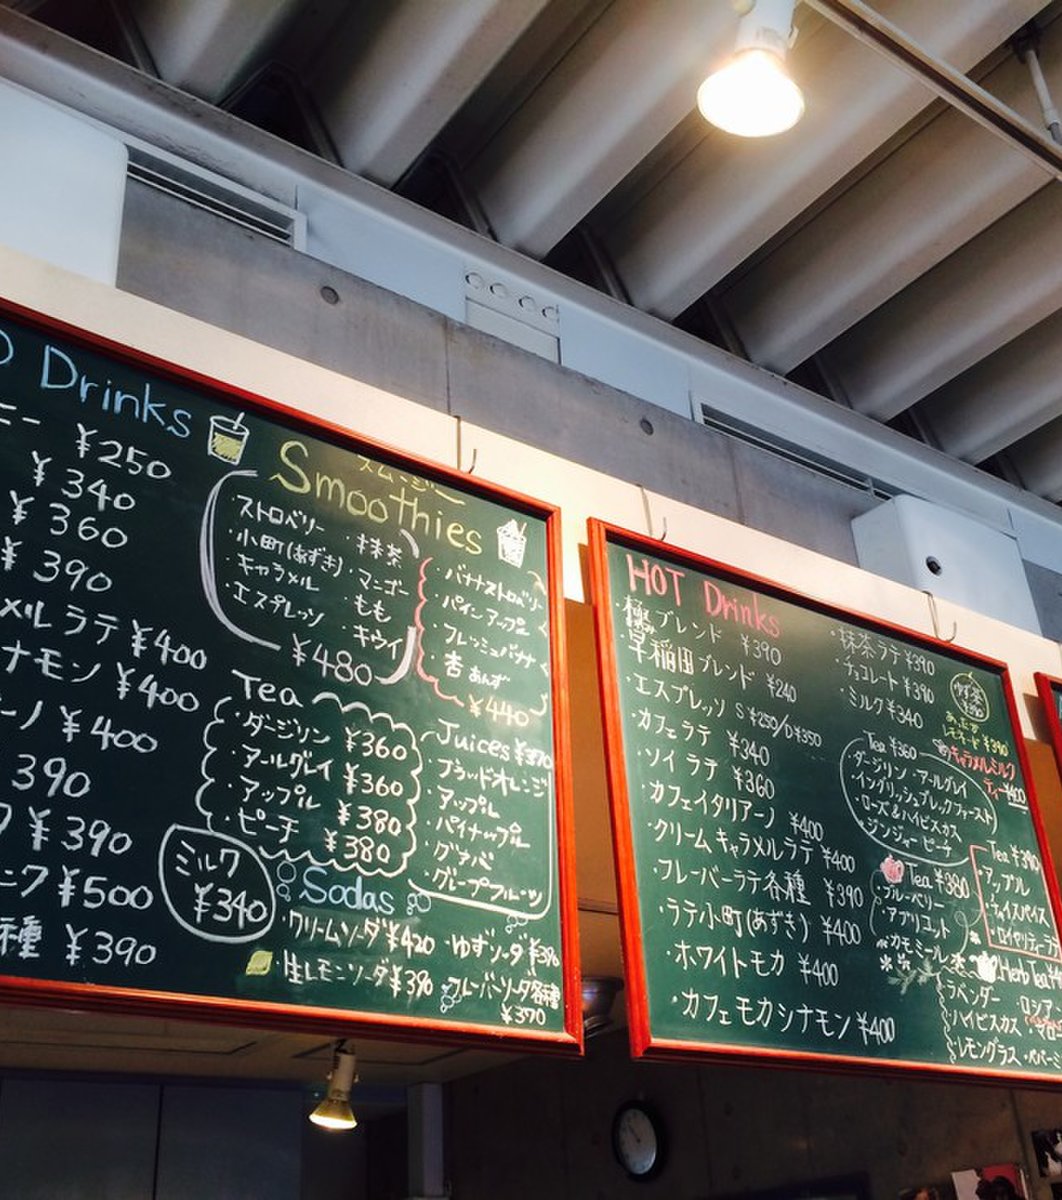 Drinks
ニー ¥250
¥340
¥360
¥390
メル ラテ ¥400
ナモン ¥400
ーノ ¥400
390
¥390
ニク ¥500
種 ¥390
スムージー
Smoothies
・ストロベリー
・小町(あずき)
・キャラメル
・エスプレッソ
・抹茶
・マンゴー
・もも
・キウイ
¥480
・バナナストロベリー
・パインアップル
・フレッシュバナナ
・杏 あんず
¥440
Tea
・ダージリン ¥360
・アールグレイ ¥360
・アップル ¥380
・ピーチ ¥380
Juices ¥370
・ブラッドオレンジ
・アップル
・パイナップル
・グァバ
・グレープフルーツ
ミルク
¥340
Sodas
・クリームソーダ ¥420
・ゆずソーダ ¥390
・生レモンソーダ ¥390
・フレーバーソーダ各種
¥370
HOT Drinks
・極ブレンド ¥390
・早稲田ブレンド ¥240
・エスプレッソ S¥250/D¥350
・カフェラテ ¥340
・ソイラテ ¥360
・カフェイタリアーノ ¥400
・クリームキャラメルラテ ¥400
・フレーバーラテ各種 ¥390
・ラテ小町(あずき) ¥400
・ホワイトモカ ¥400
・カフェモカシナモン ¥400
・抹茶ラテ ¥390
・チョコレート ¥390
・ミルク ¥340
ゆず茶
¥390
レモネード ¥390
キャラメルミルク
ティー ¥400
Tea ¥360
・ダージリン・アールグレイ
・イングリッシュブレックファースト
・ローズ&ハイビスカス
・ジンジャーピーチ
Tea ¥380
・ブルーベリー
・アプリコット
・カモミール
Tea ¥390
・アップル
・チャイスパイス
・ロイヤルティー
Herb Tea
・ラベンダー
・ロシア
・ハイビスカス
・レモングラス
・ペパーミ